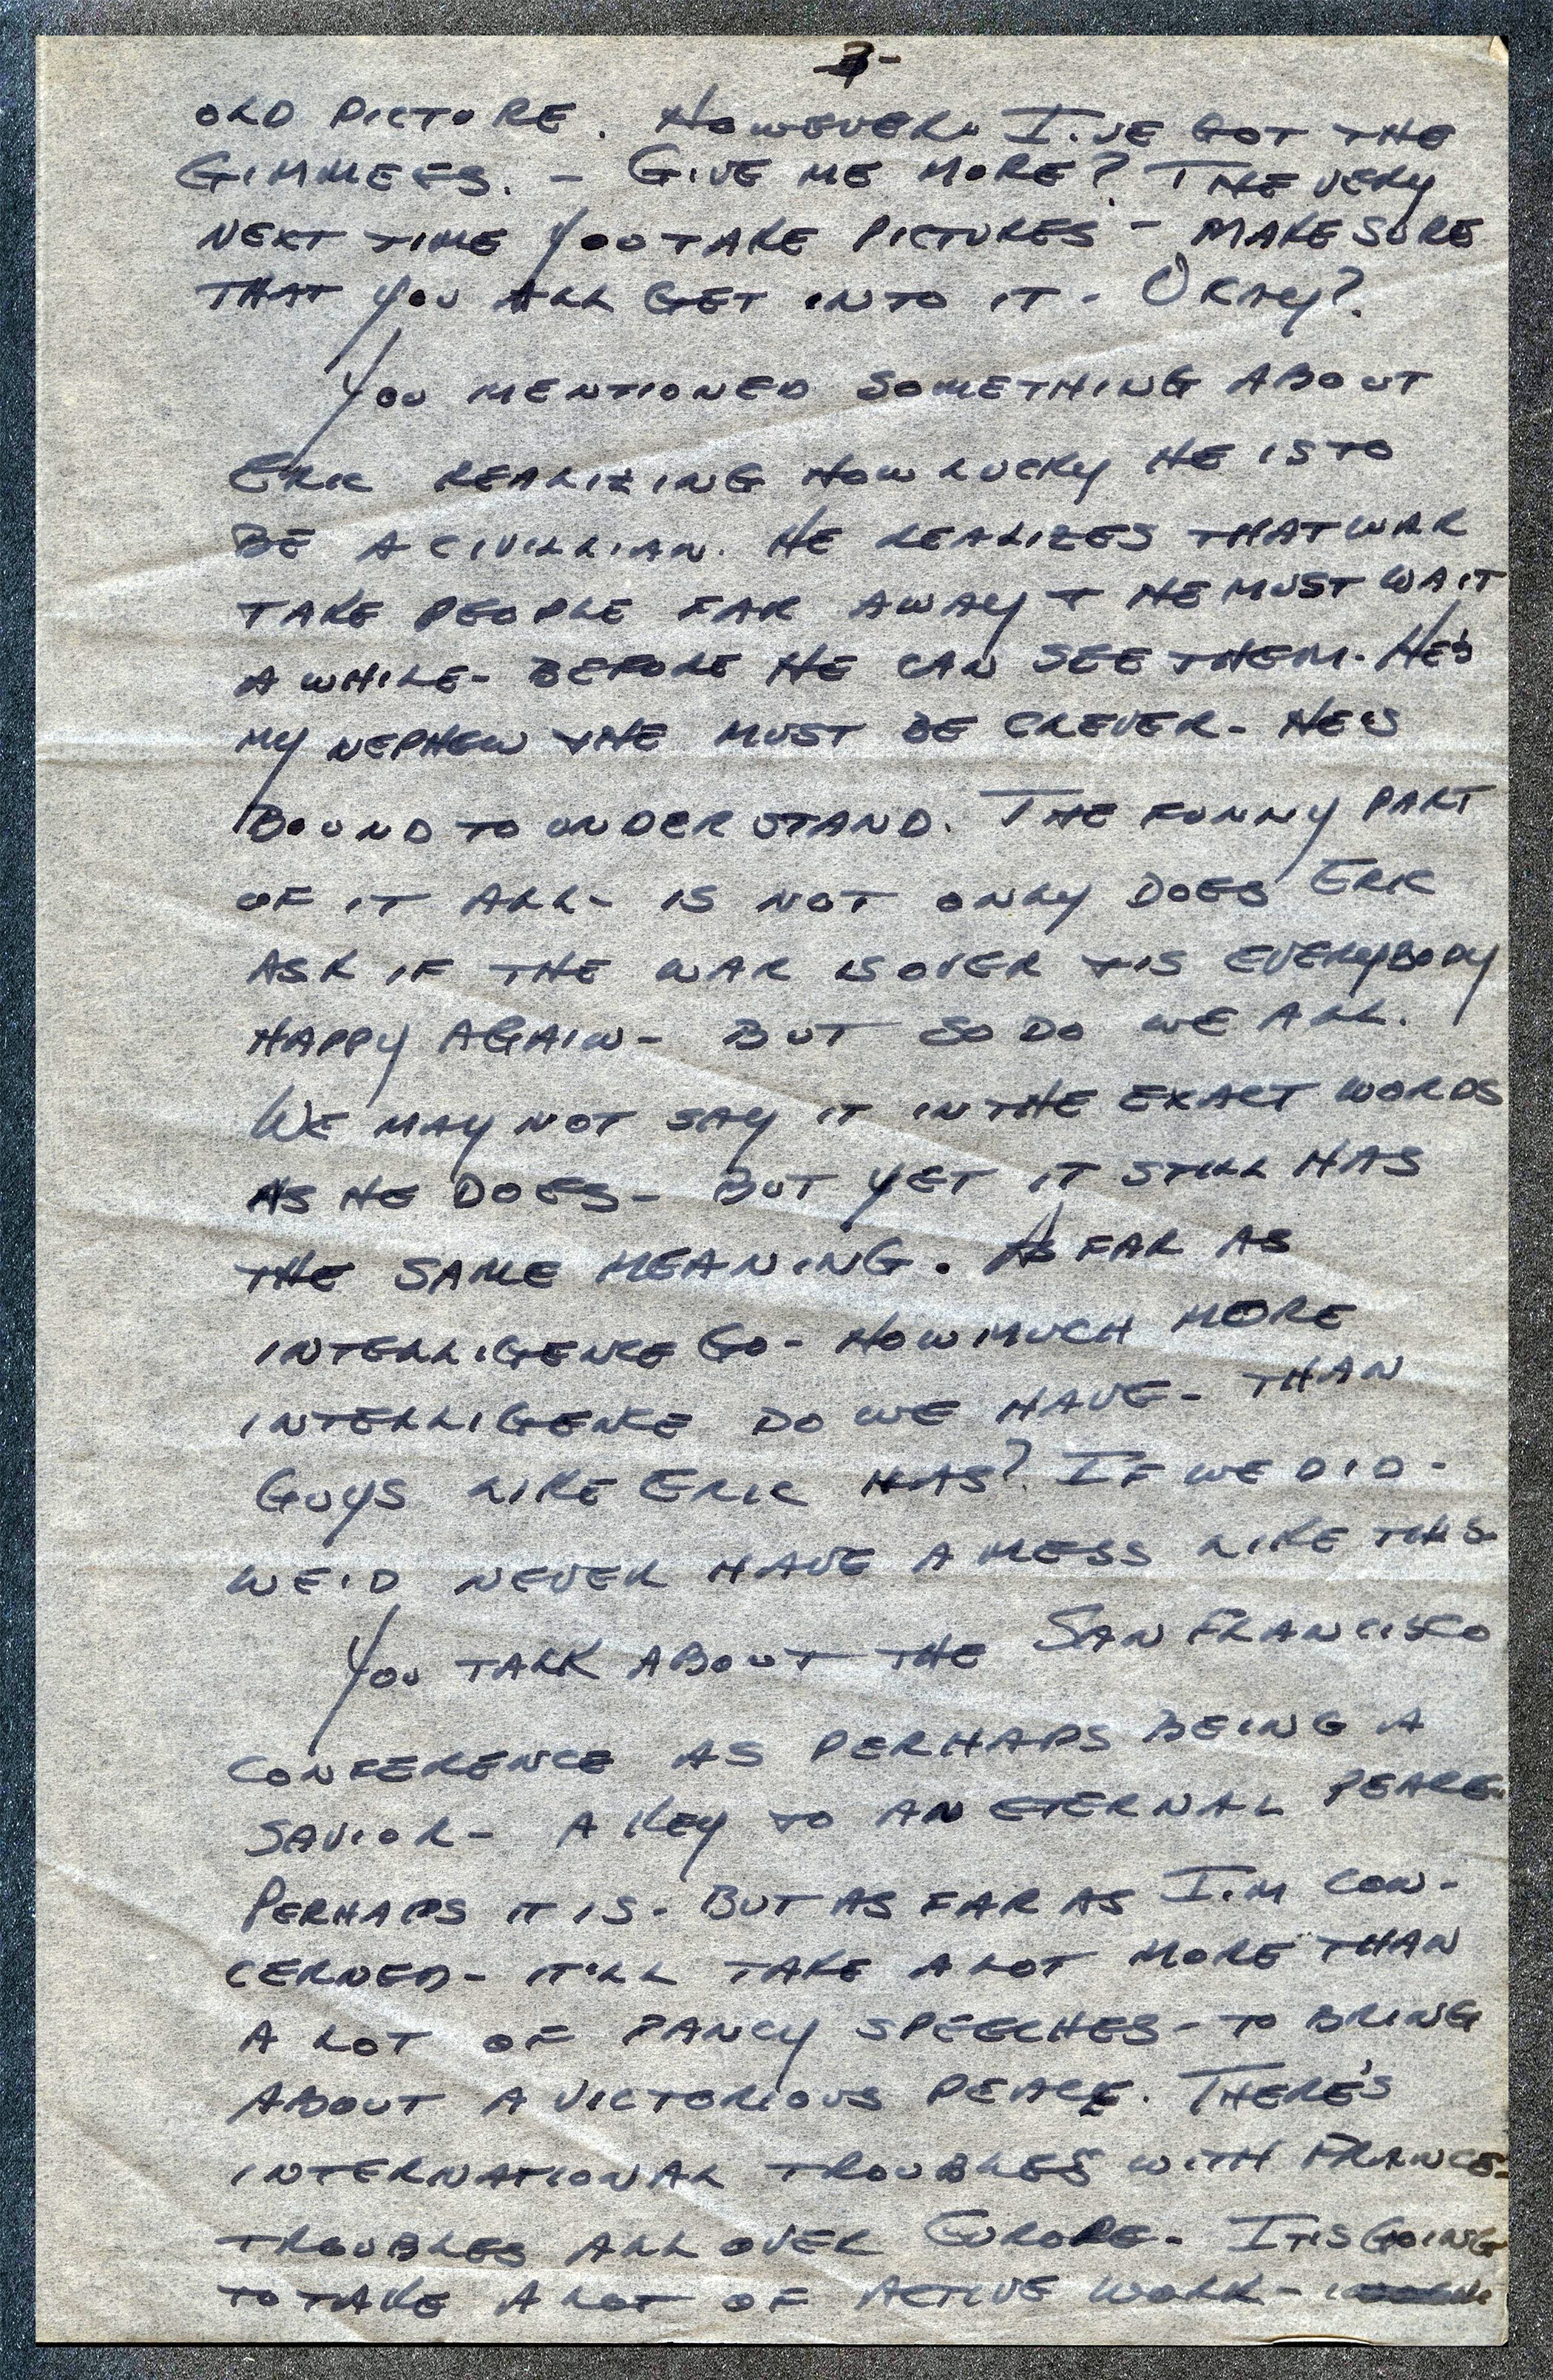 3-
OLD PICTURE. HOWEVER. I'VE GOT THE
GIMMEES. - GIVE ME MORE? THE VERY
NEXT TIME YOU TAKE PICTURES - MAKE SURE
THAT YOU ALL GET INTO IT - OKAY?
YOU MENTIONED SOMETHING ABOUT
ERIC REALIZING HOW LUCKY HE IS TO
BE A CIVILLIAN. HE REALIZES THAT WAR
TAKE PEOPLE FAR AWAY + HE MUST WAIT
A WHILE - BEFORE HE CAN SEE THEM. HE'S
MY NEPHEW + HE MUST BE CLEVER - HE'S
BOUND TO UNDERSTAND. THE FUNNY PART
OF IT ALL - IS NOT ONLY DOES ERIC
ASK IF THE WAR IS OVER + IS EVERYBODY
HAPPY AGAIN - BUT SO DO WE ALL.
WE MAY NOT SAY IT IN THE EXACT WORDS
AS HE DOES - BUT YET IT STILL HAS
THE SAME MEANING. AS FAR AS
INTELLIGENCE GO - HOW MUCH MORE
INTELLIGENCE DO WE HAVE - THAN
GUYS LIKE ERIC HAS? IF WE DID -
WE'D NEVER HAVE A MESS LIKE THIS
YOU TALK ABOUT THE SAN FRANCISCO
CONFERENCE AS PERHAPS BEING A
SAVIOR - A KEY TO AN ETERNAL PEACE.
PERHAPS IT IS - BUT AS FAR AS I'M CON-
CERNED - IT'LL TAKE A LOT MORE THAN
A LOT OF FANCY SPEECHES - TO BRING
ABOUT A VICTORIOUS PEACE. THERE'S
INTERNATIONAL TROUBLES WITH FRANCE -
TROUBLES ALL OVER EUROPE - IT IS GOING
TO TAKE A LOT OF ACTIVE WORK -